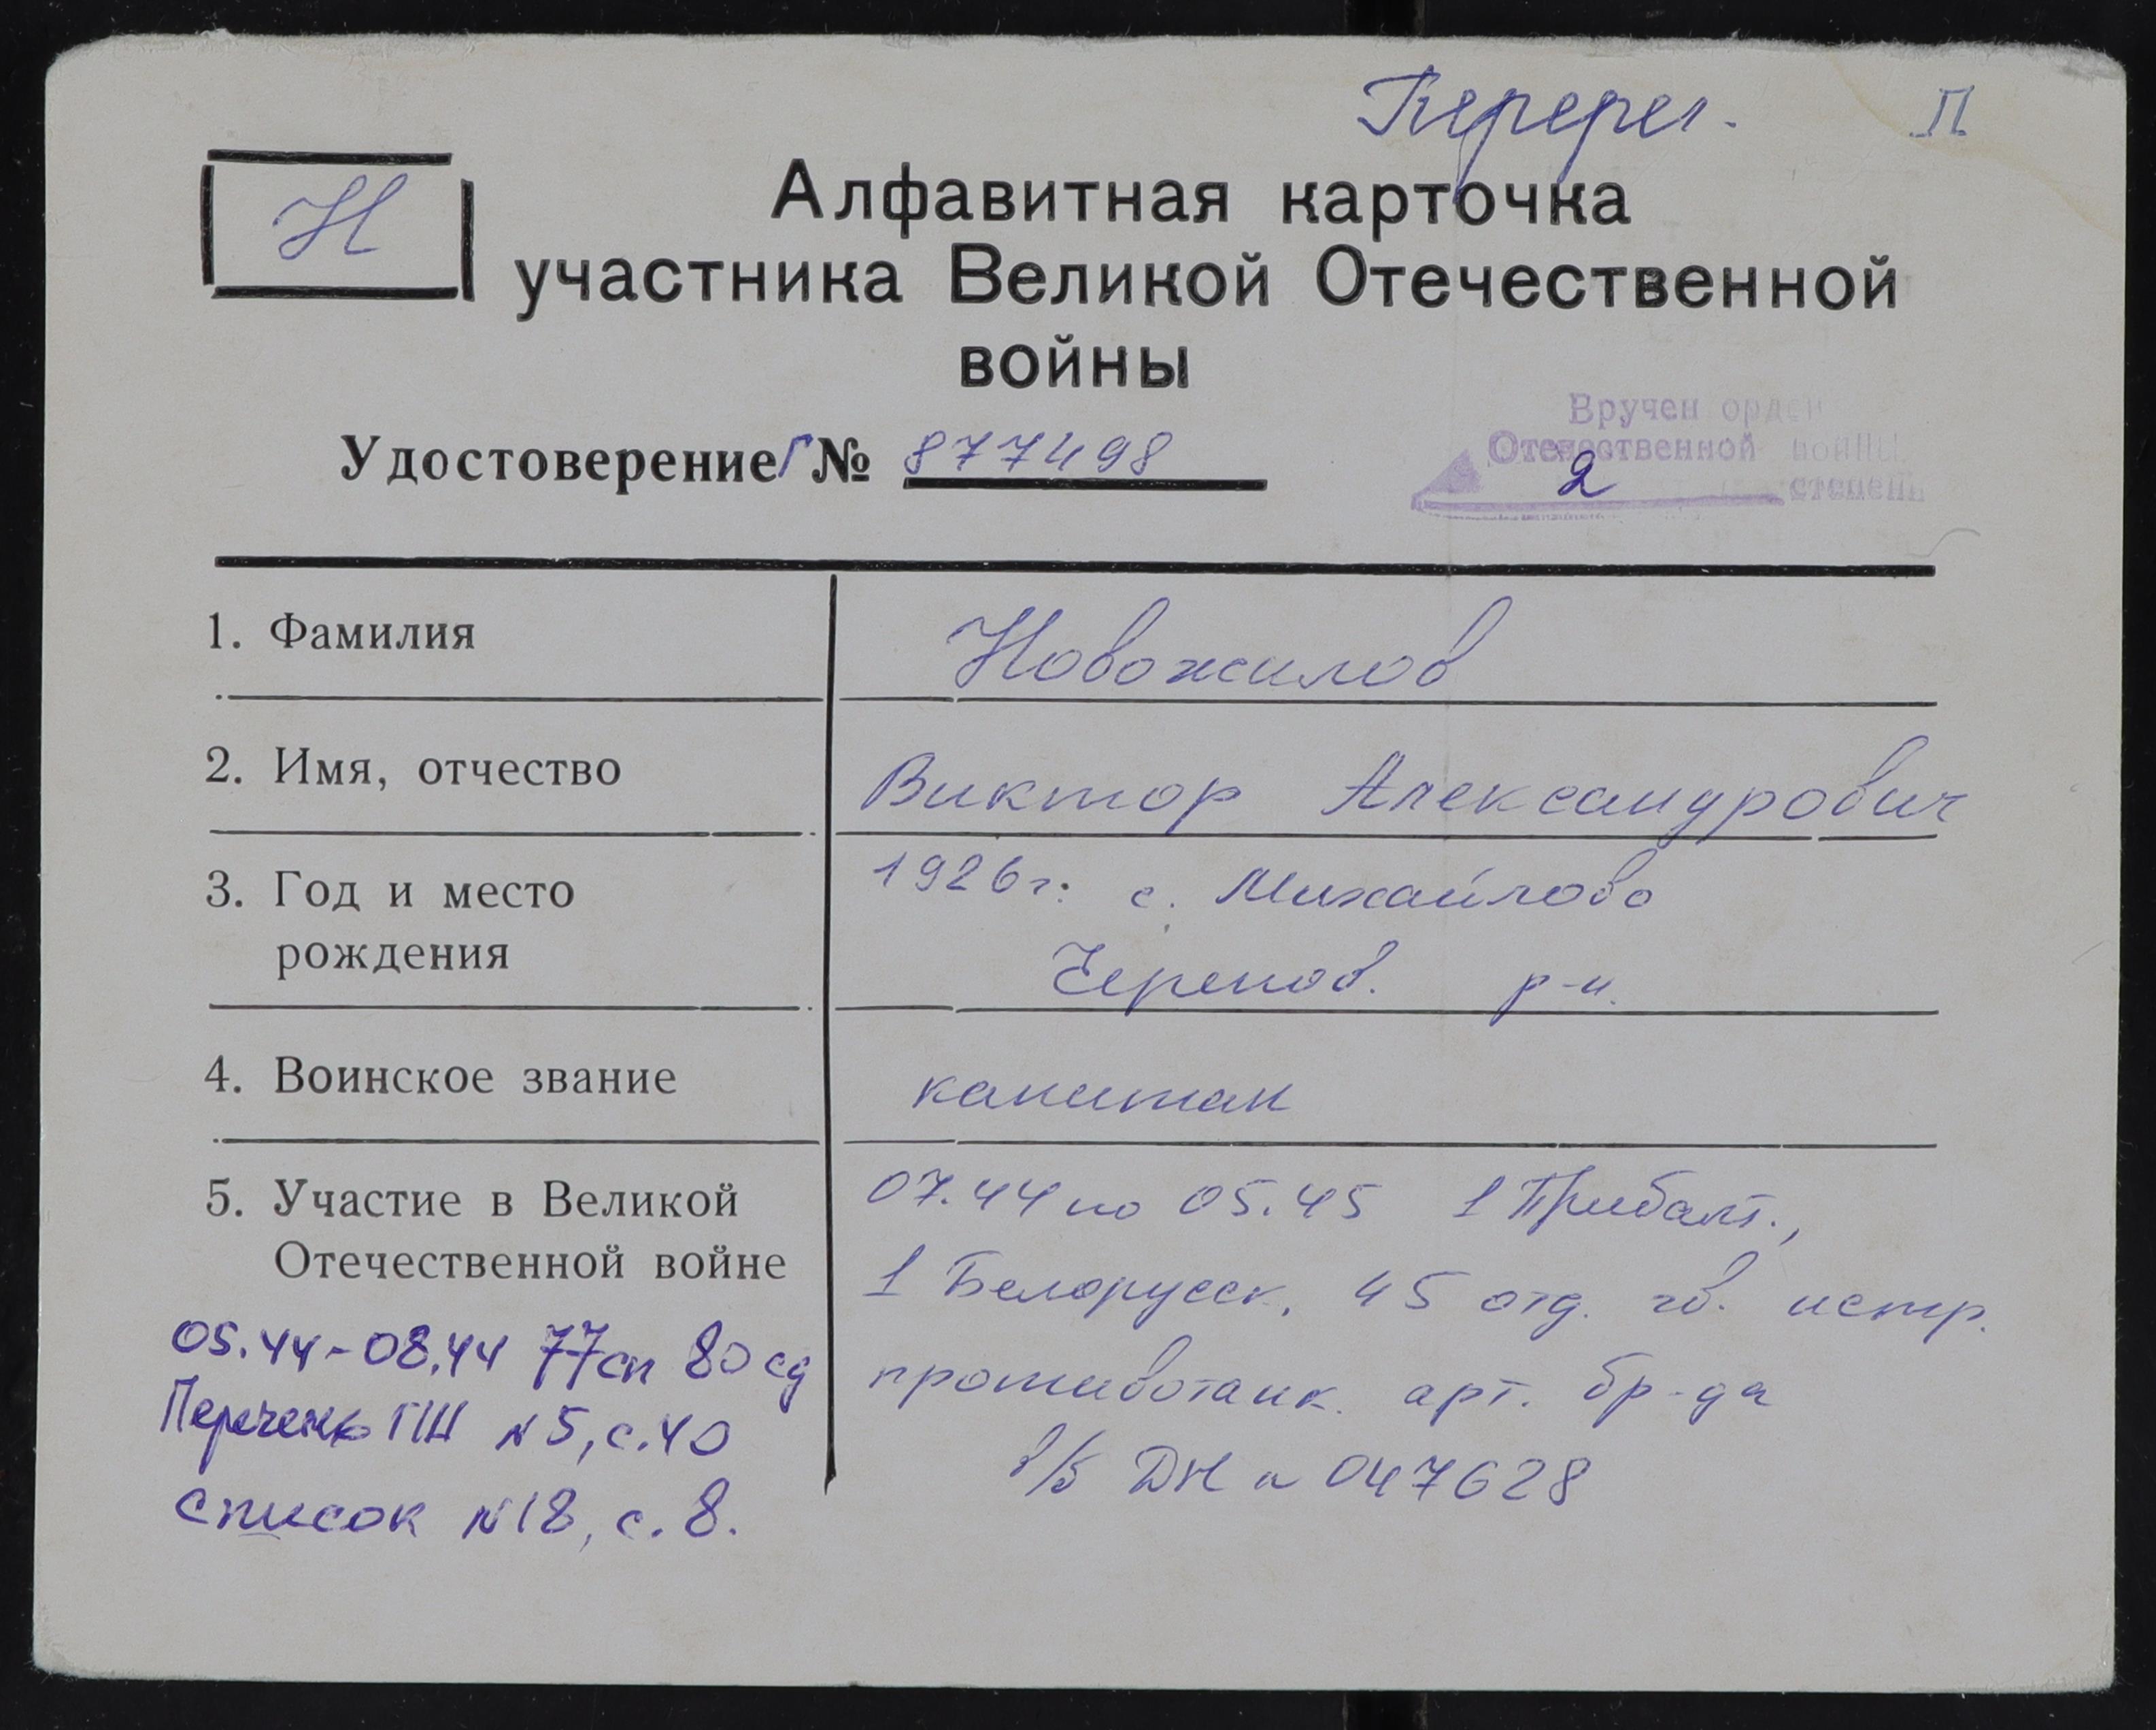 Перерег. П
Н
Алфавитная карточка
участника Великой Отечественной
войны
Удостоверение Г № 877498
Вручен орден
Отечественной войны
2 степени
1. Фамилия
Новожилов
2. Имя, отчество
Виктор Александрович
3. Год и место
рождения
1926г. с. Михайлово
Черепов. р-н.
4. Воинское звание
капитан
5. Участие в Великой
Отечественной войне
05.44-08.44 77сп 80 сд
Перечень ГШ N 5, с.40
список N18, с. 8.
07.44 по 05.45 1 Прибалт.,
1 Белорусск. 45 отд. гв. истр.
противотанк. арт. бр-да
в/б ДН N 047628